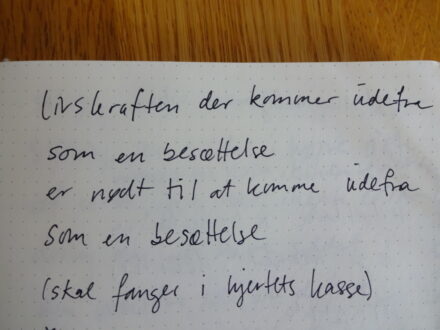 livskraften der kommer udefra
som en besættelse
er nødt til at komme udefra
som en besættelse
(skal fanges i hjertets kasse)